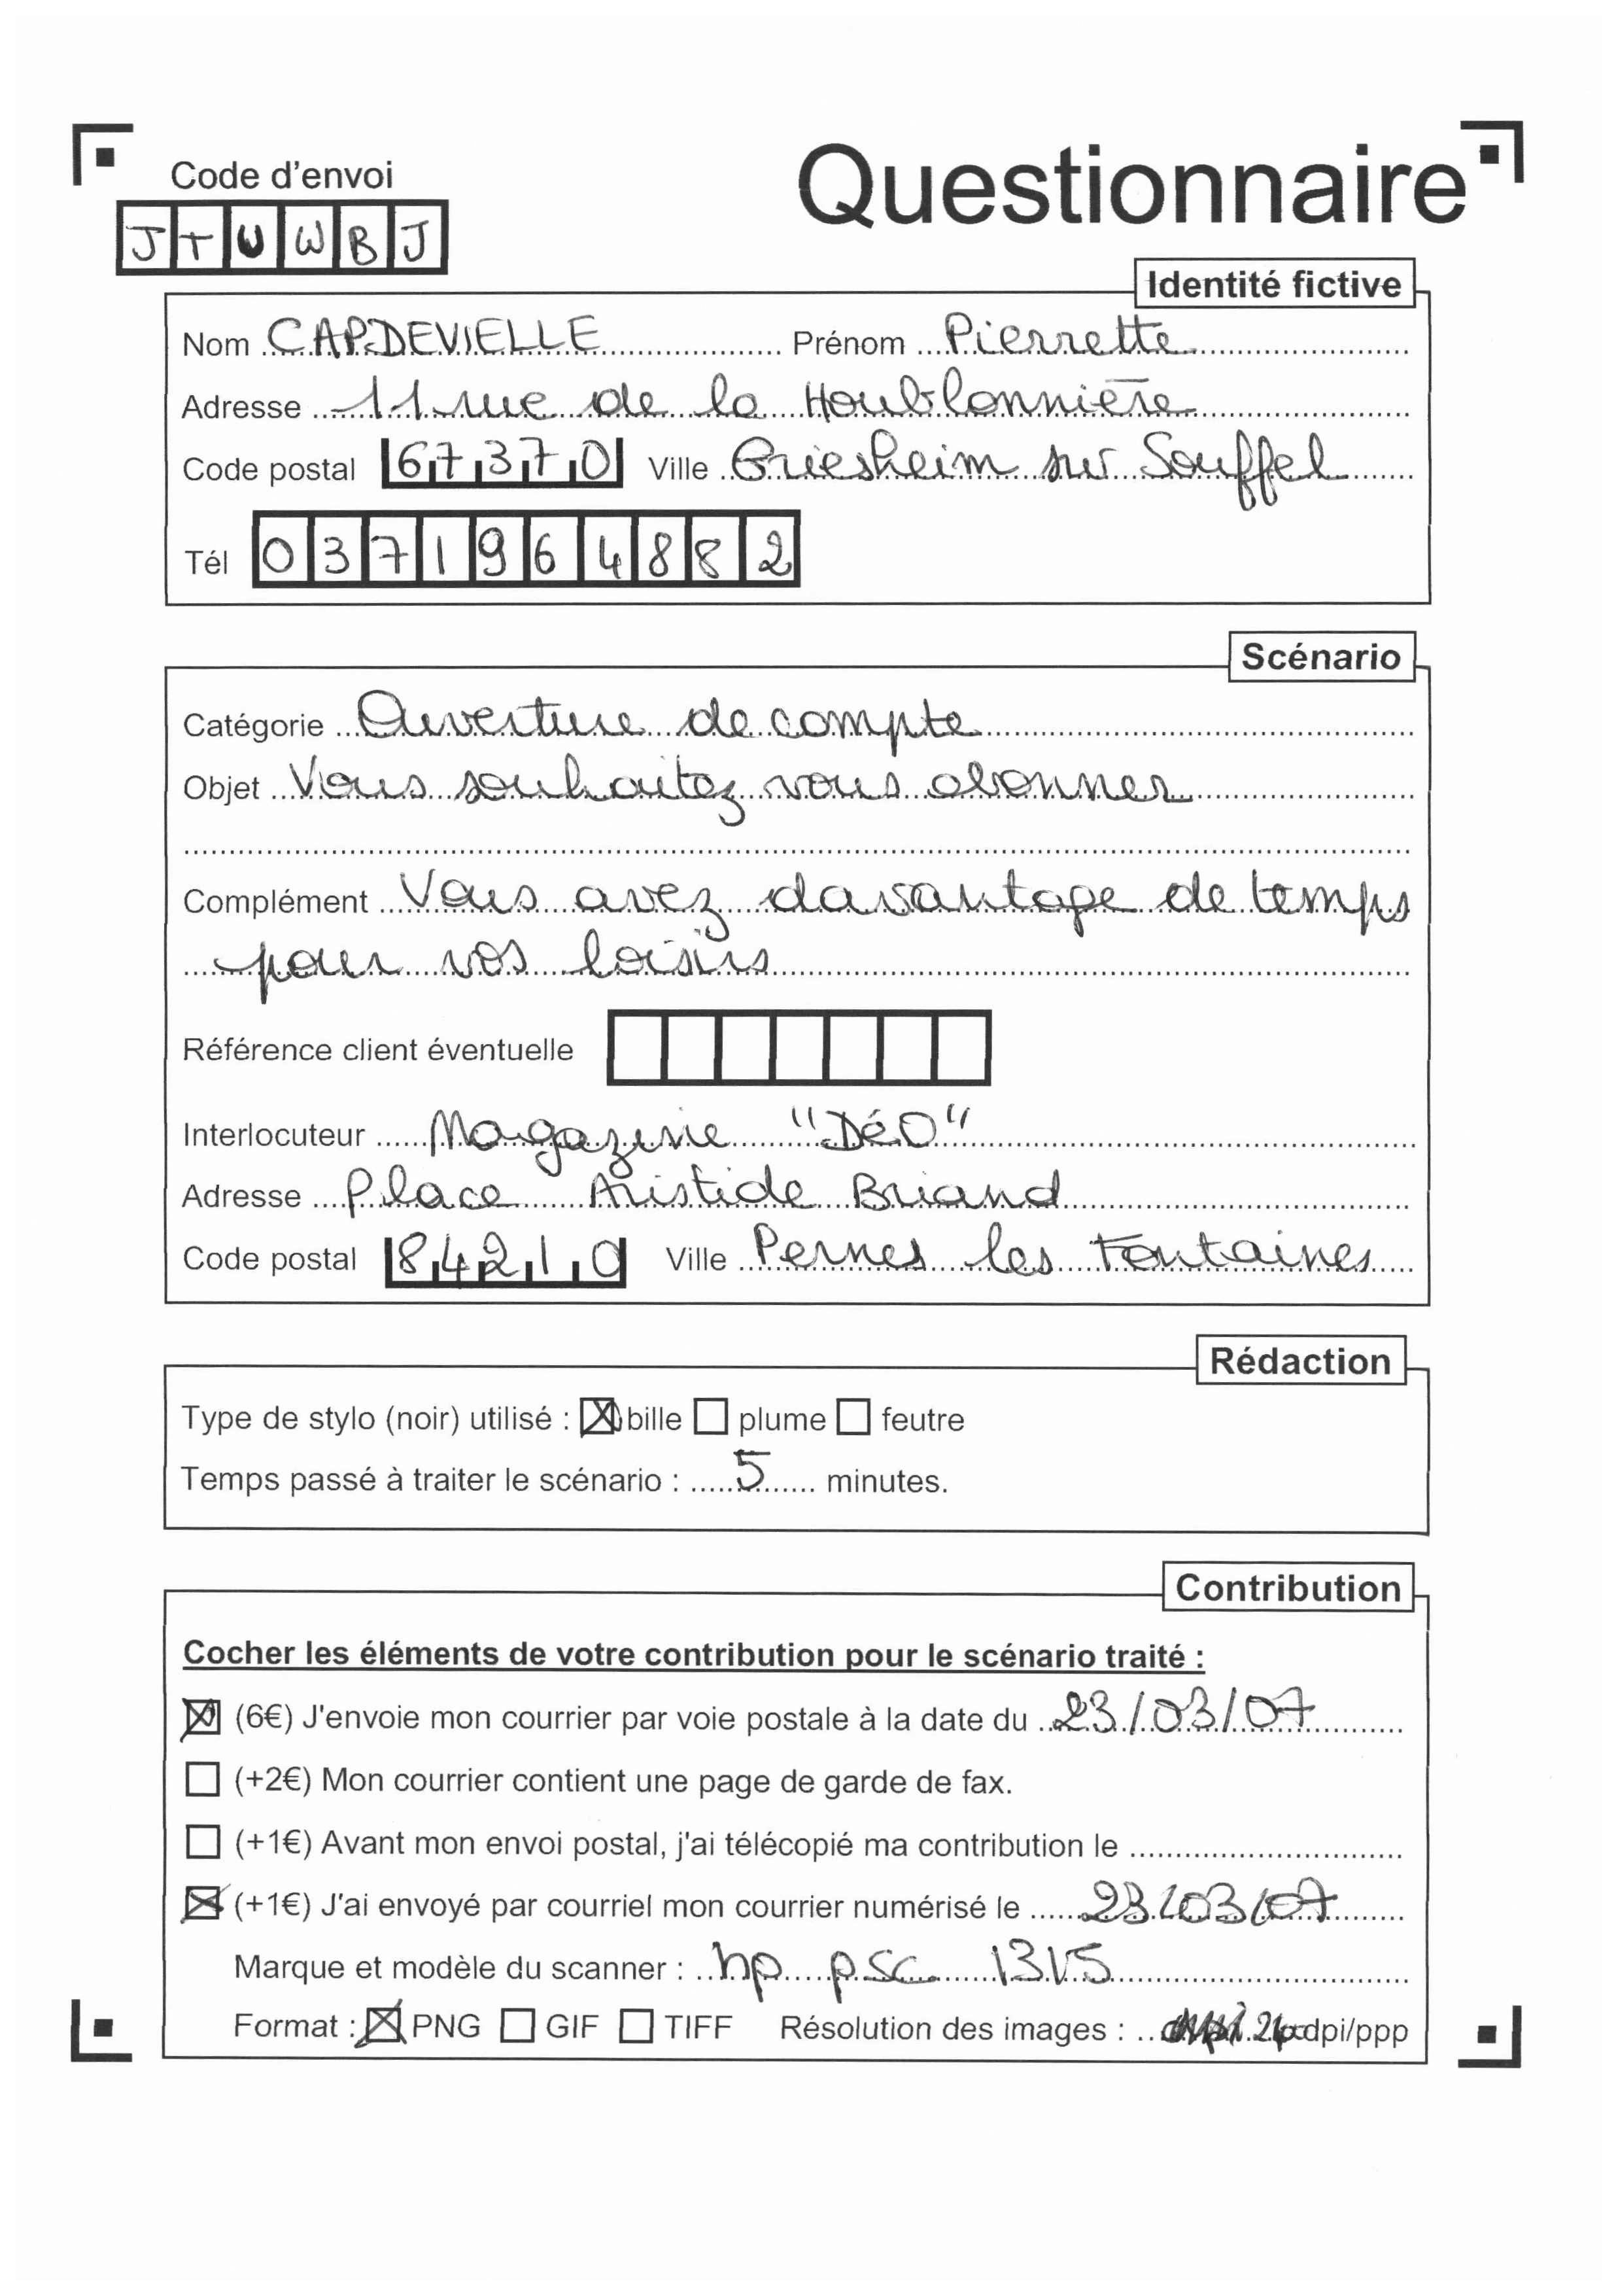 Code d'envoi
Questionnaire
JTUWBJ
Identité fictive
Nom CAPDEVIELLE Prénom Pierrette
Adresse 11 rue de la Houblonnière
Code postal 67370 Ville Griesheim sur Souffel
Tél 0371964882
Scénario
Catégorie Ouverture de compte
Objet Vous souhaitez vous abonner
Complément Vous avez davantage de temps
pour vos loisirs
Référence client éventuelle
Interlocuteur Magazine "DéO"
Adresse Place Aristide Briand
Code postal 84210 Ville Pernes les Fontaines
Rédaction
Type de stylo (noir) utilisé : bille plume feutre
Temps passé à traiter le scénario : 5 minutes.
Contribution
Cocher les éléments de votre contribution pour le scénario traité :
(6€) J'envoie mon courrier par voie postale à la date du 23/03/07
(+2€) Mon courrier contient une page de garde de fax.
(+1€) Avant mon envoi postal, j'ai télécopié ma contribution le
(+1€) J'ai envoyé par courriel mon courrier numérisé le 23/03/07
Marque et modèle du scanner : hp psc 1315
Format : PNG GIF TIFF Résolution des images : dpi/ppp